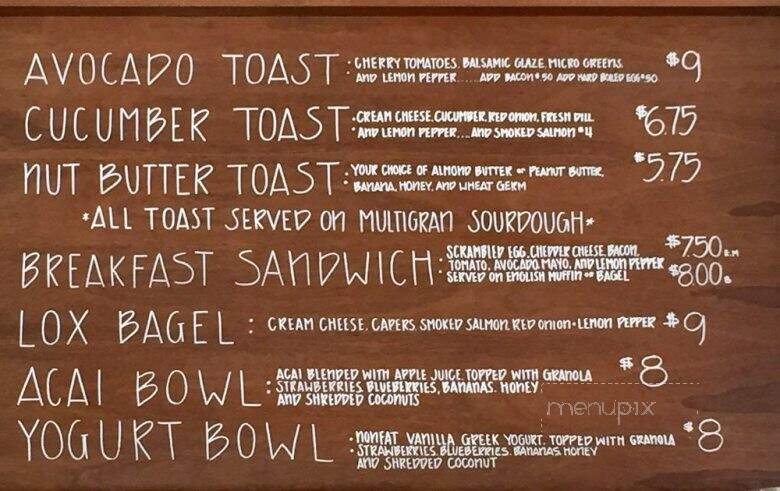 AVOCADO TOAST: CHERRY TOMATOES. BALSAMIC GLAZE. MICRO GREENS. $9
AND LEMON PEPPER..... ADD BACON $.50 ADD HARD BOILED EGG $.50
CUCUMBER TOAST: CREAM CHEESE. CUCUMBER. RED ONION. FRESH DILL $6.75
AND LEMON PEPPER.... AND SMOKED SALMON $4
NUT BUTTER TOAST: YOUR CHOICE OF ALMOND BUTTER or PEANUT BUTTER, $5.75
BANANA, HONEY, AND WHEAT GERM
*ALL TOAST SERVED ON MULTIGRAN SOURDOUGH*
BREAKFAST SANDWICH: SCRAMBLED EGG, CHEDDER CHEESE, BACON, $7.50 E.M
TOMATO, AVOCADO, MAYO, AND LEMON PEPPER $8.00 B
SERVED ON ENGLISH MUFFIN or BAGEL
LOX BAGEL: CREAM CHEESE, CAPERS, SMOKED SALMON, RED ONION + LEMON PEPPER $9
ACAI BOWL: ACAI BLENDED WITH APPLE JUICE TOPPED WITH GRANOLA $8
STRAWBERRIES. BLUEBERRIES, BANANAS. HONEY
AND SHREDDED COCONUTS
menupix
YOGURT BOWL: NONFAT VANILLA GREEK YOGURT. TOPPED WITH GRANOLA $8
STRAWBERRIES, BLUEBERRIES, BANANAS, HONEY
AND SHREDDED COCONUT